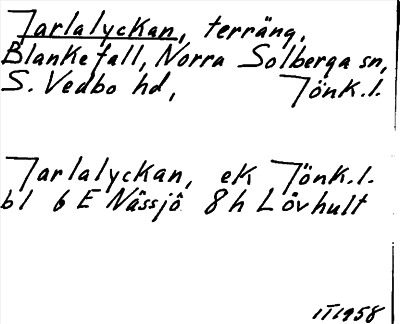 Jarlalyckan, terräng,
Blankefall, Norra Solberga sn,
S. Vedbo hd, Jönk.l.
Jarlalyckan, ek Jönk.l.
bl 6 E Nässjö 8h Lövhult
1958